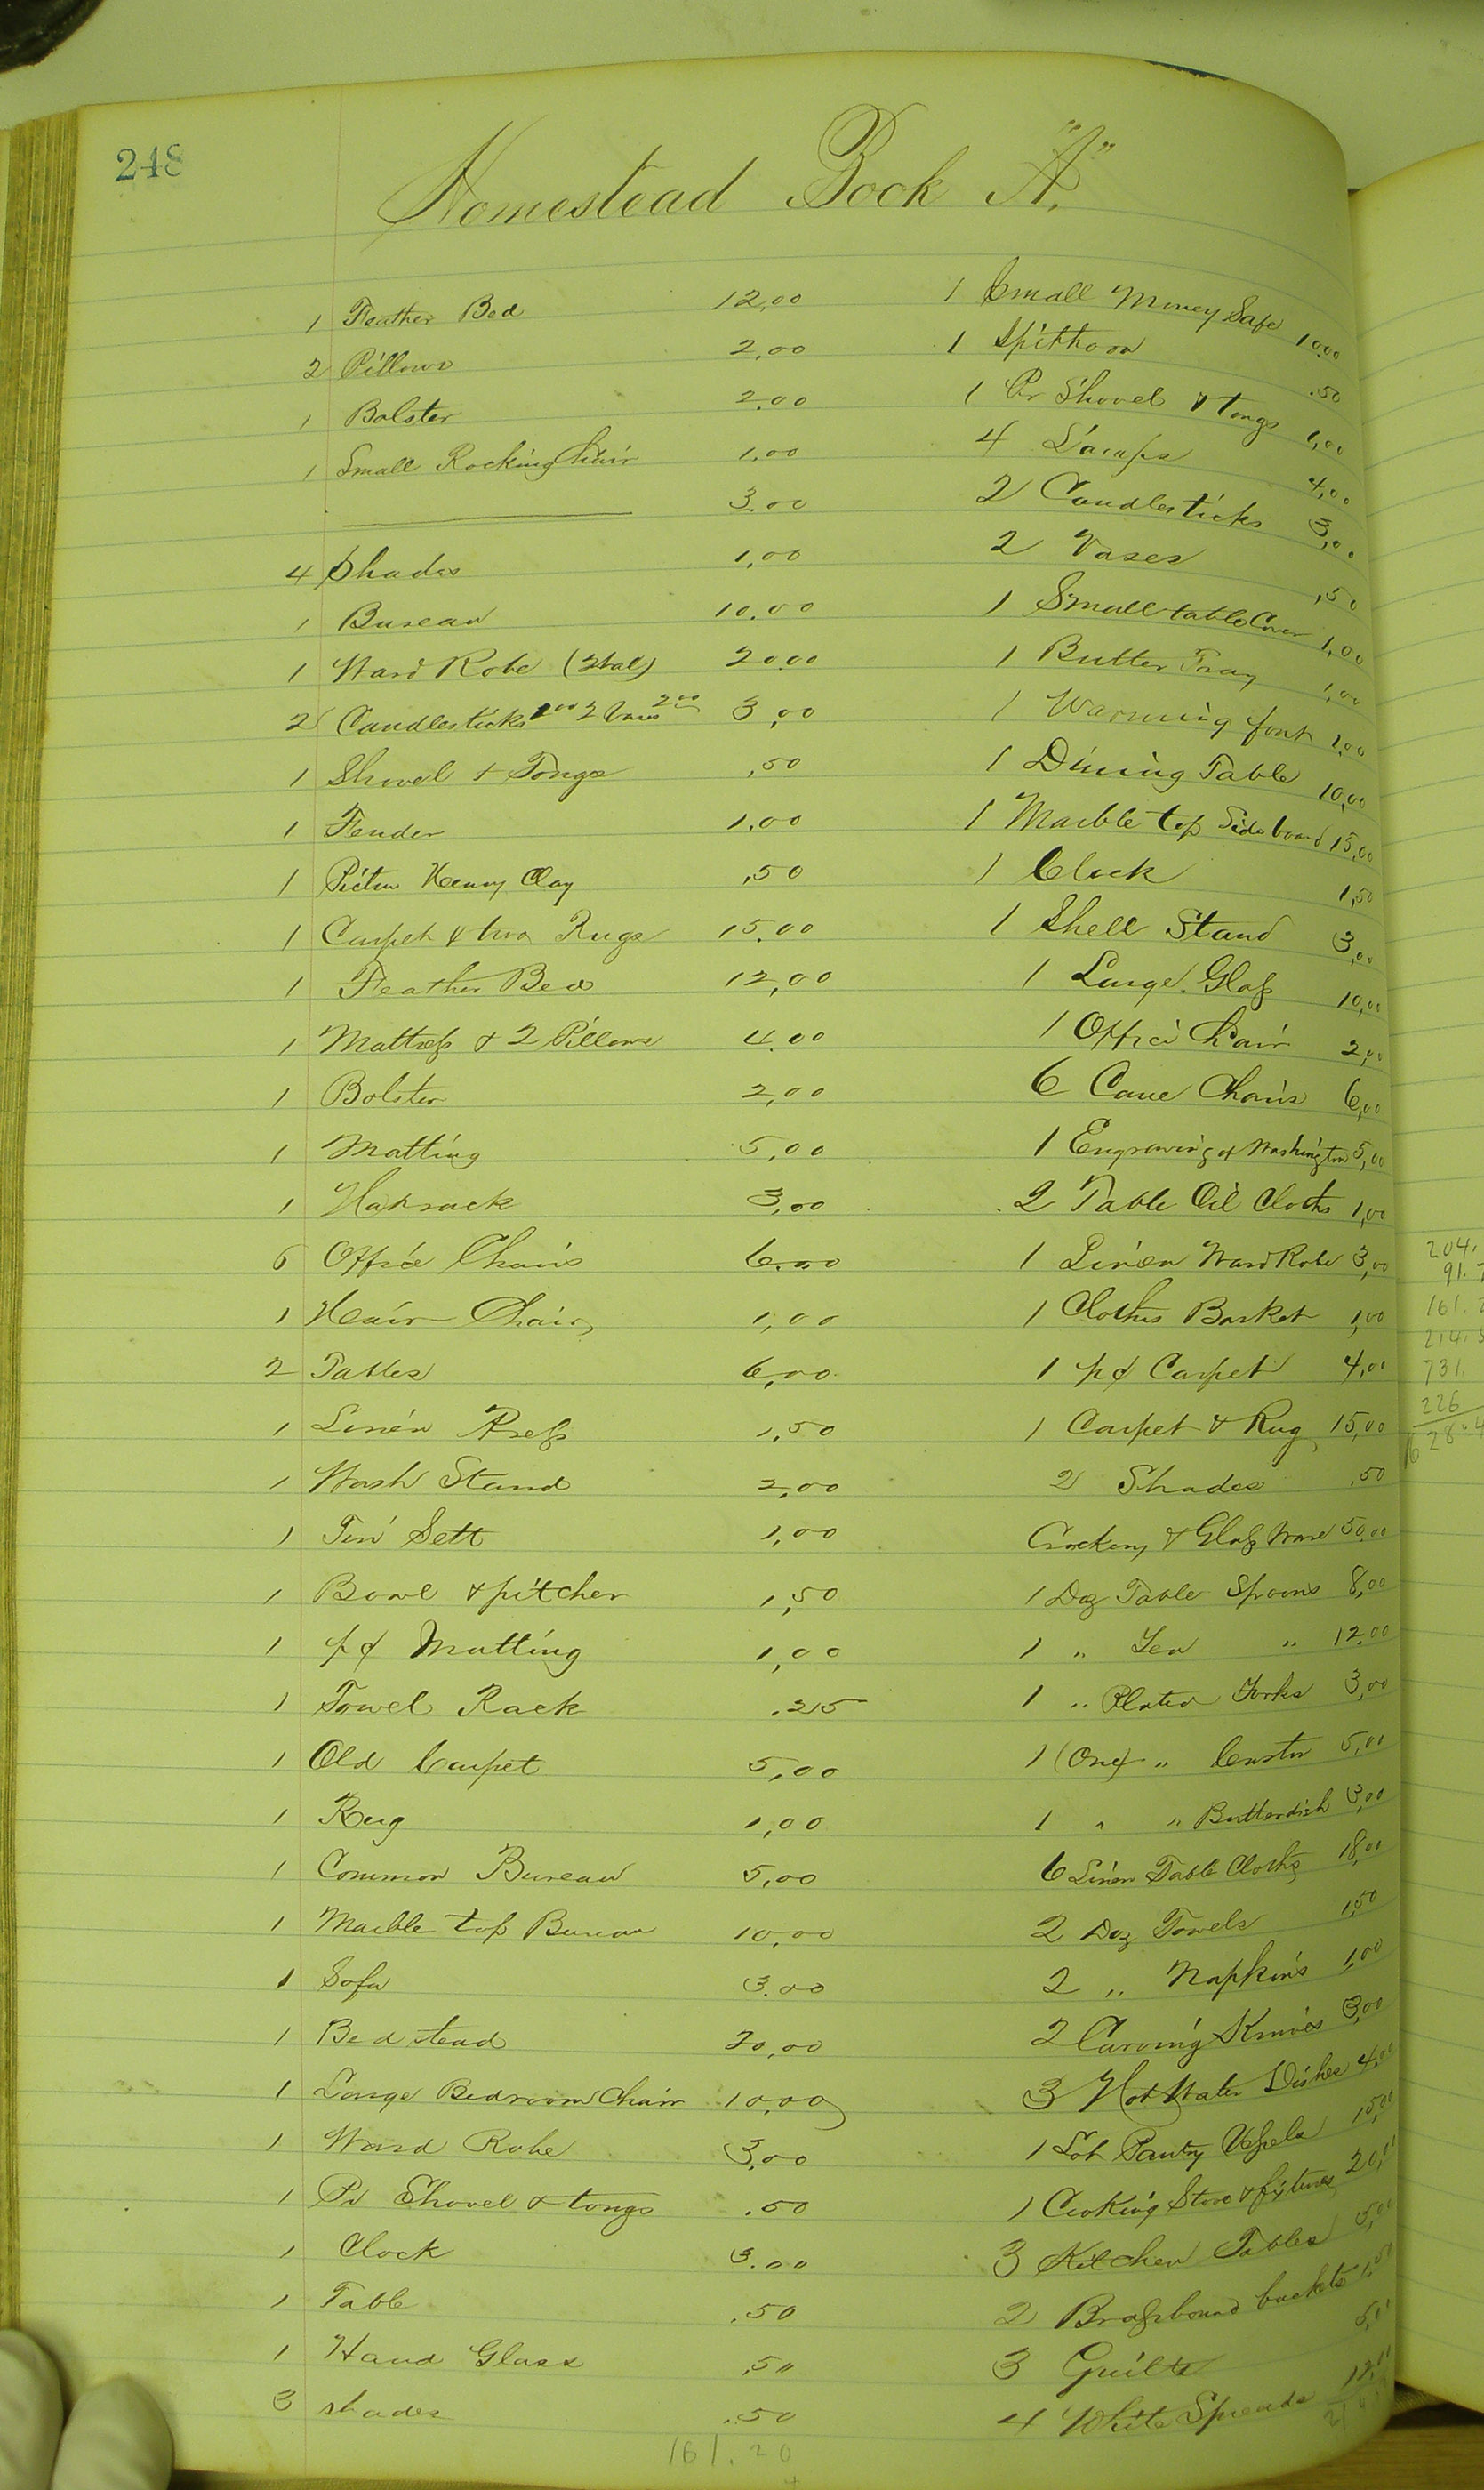 248
Homestead Book "A".
1 Feather Bed 12,00
2 Pillows 2,00
1 Bolster 2.00
1 Small Rocking Chair 1,00
3.00
4 Shades 1,00
1 Bureau 10.00
1 Ward Robe 20.00
2 Candlesticks 2 Vases 2 00 3,00
1 Shovel & Tongs ,50
1 Fender 1.00
1 Pictur Henry Clay ,50
1 Carpet & two Rugs 15.00
1 Feather Bed 12,00
1 Mattress & 2 Pillows 4.00
1 Bolster 2,00
1 Matting 5,00
1 Hatrack 3,00
6 Office Chairs 6.00
1 Hair Chair 1,00
2 Tables 6,00
1 Linen Press 1,50
1 Wash Stand 2,00
1 Tin Sett 1,00
1 Bowl & pitcher 1,50
1 p¢ Matting 1,00
1 Towel Rack .25
1 Old Carpet 5,00
1 Rug 1,00
1 Common Bureau 5,00
1 Marble top Bureau 10,00
1 Sofa 3.00
1 Bedstead 20,00
1 Large Bedroom Chair 10,00
1 Ward Robe 3,00
1 Pr Shovel & tongs .50
1 Clock 3.00
1 Table .50
1 Hand Glass ,50
3 shades .50
161.20
1 Small Money Safe 10.00
1 Spittoon .50
1 Pr Shovel & Tongs 1,00
4 Lamps 4,00
2 Candlesticks 3,00
2 Vases ,50
1 Small table Cover 1,00
1 Butter Tray 1,00
1 Warming
1 Dining Table 10,00
1 Marble top Sideboard 15,00
1 Clock 1,50
1 Shell Stand 3,00
1 Large Glass 10,00
1 Office Chair 2,00
6 Cane Chairs 6,00
1 Engraving of Washington 5,00
2 Table Oil Cloths 1,00
1 Linen Ward Robe 3,00
1 Clothes Basket 1,00
1 p¢ Carpet 4,00
1 Carpet & Rug 15,00
2 Shades .50
Crockery & Glass Ware 50.00
1 Doz Table Spoons 8,00
1 " Tea " 12.00
1 " Plated Forks 3,00
1 (One) " Castor 5,00
1 " " Butterdish 3,00
6 Linen Table Cloths 18,00
2 Doz Towels 1,50
2 " Napkins 1,00
2 Carving Knives 3,00
3 Hot Water Dishes 4,00
1 Lot Pantry Vessels 15,00
1 Cooking Stove & fixtures 20,00
3 Kitchen Tables 5,00
2 Brassbound buckets 1,50
3 Quilts
4 White Spreads 12,00
204.
91.
161.
214.
731.
226